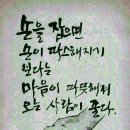 손을 잡으면
손이 따스해지기
보다는
마음이 따뜻해져
오는 사람이 좋다.